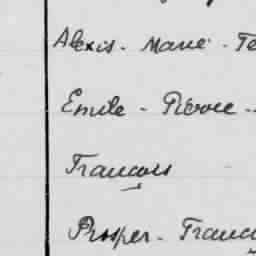 Alexis - Marie - Te
Emile - Pierre -
Francois
Prosper - Franco